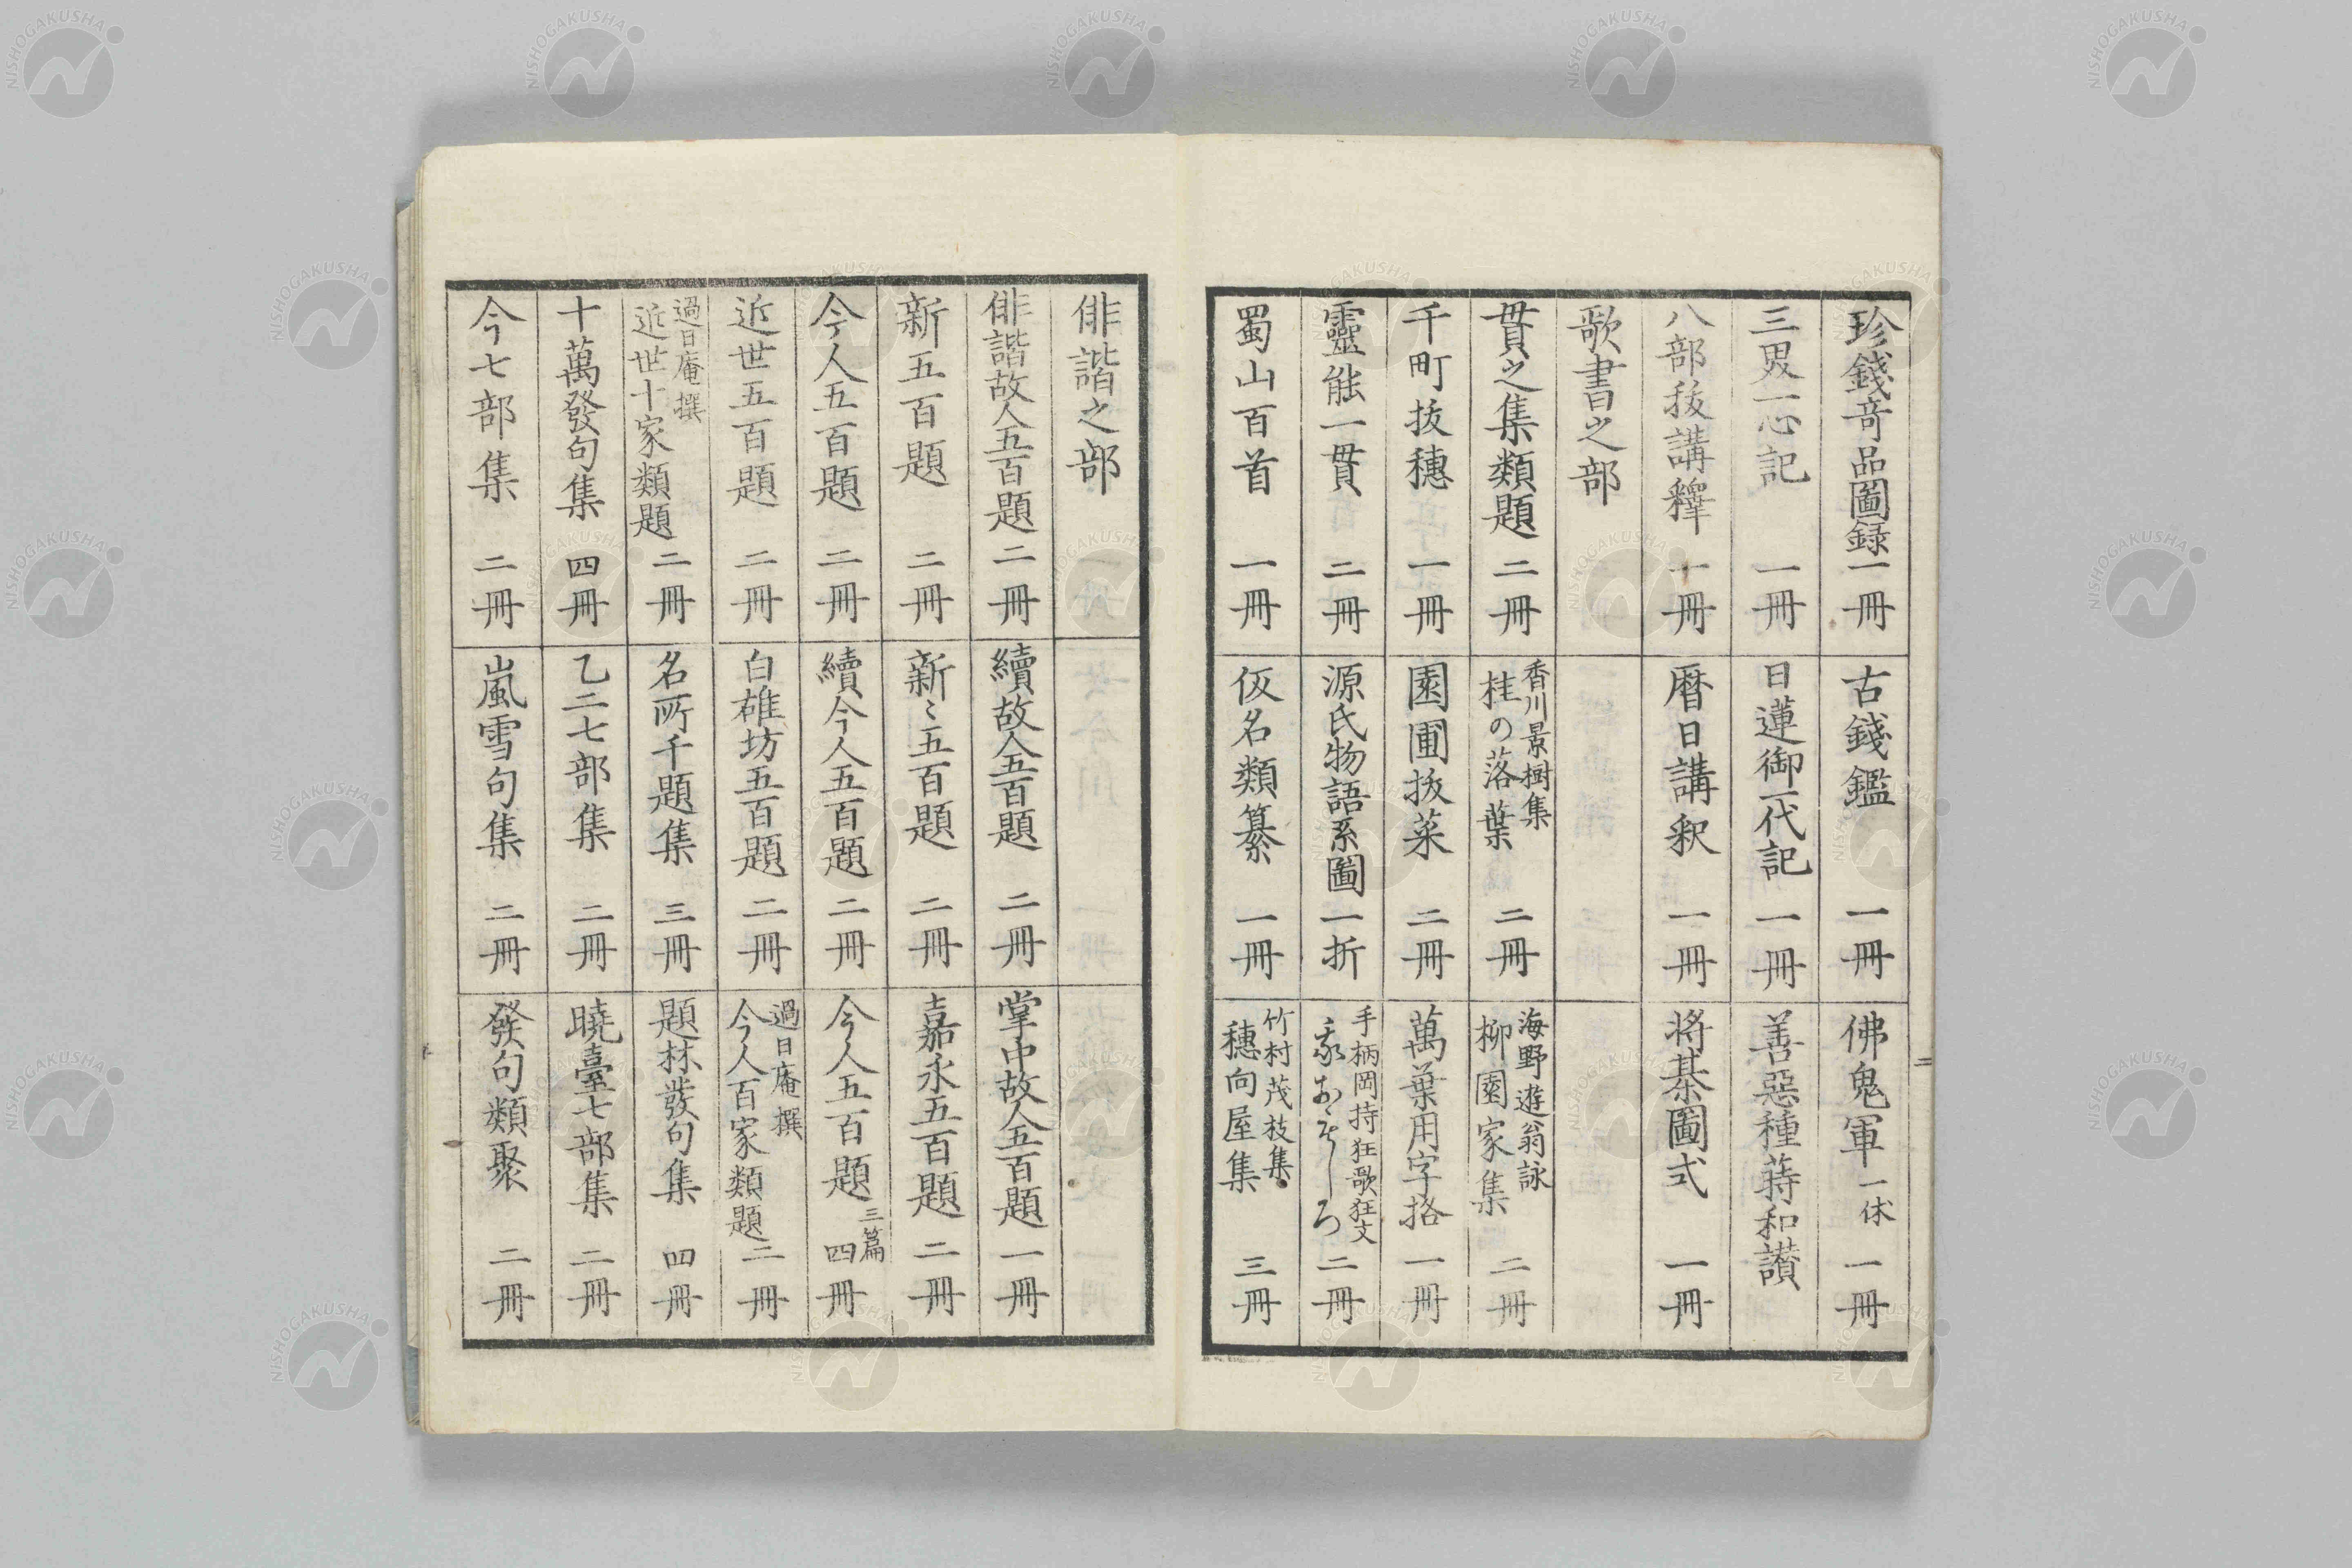 珍錢竒品圖録一冊
古錢鑑 一冊
佛鬼軍 一休 一冊
三界一心記 一冊
日蓮御一代記 一冊
善惡種蒔和讃
八部抜講釋 一冊
暦日講釈 一冊
将棊圖式 一冊
歌書之部
貫之集類題 二冊
香川景樹集
桂の落葉 二冊
海野遊翁詠
柳園家集 二冊
千町抜穗 一冊
園圃抜菜 二冊
萬葉用字格 一冊
靈能一貫 二冊
源氏物語系圖 一折
手柄岡持狂歌狂文
我おもしろ 二冊
蜀山百首 一冊
仮名類纂 一冊
竹村茂枝集
穗向屋集 三冊
俳諧之部
俳諧故人五百題 二冊
續故人五百題 二冊
掌中故人五百題 一冊
新五百題 二冊
新〻五百題 二冊
嘉永五百題 二冊
今人五百題 二冊
續今人五百題 二冊
今人五百題 三篇 四冊
近世五百題 二冊
白雄坊五百題 二冊
過日庵撰
今人百家類題 二冊
過日庵撰
近世十家類題 二冊
名所千題集 三冊
題林發句集 四冊
十萬發句集 四冊
乙二七部集 二冊
曉臺七部集 二冊
今七部集 二冊
嵐雪句集 二冊
發句類聚 二冊
二
NISHOGAKUSHA